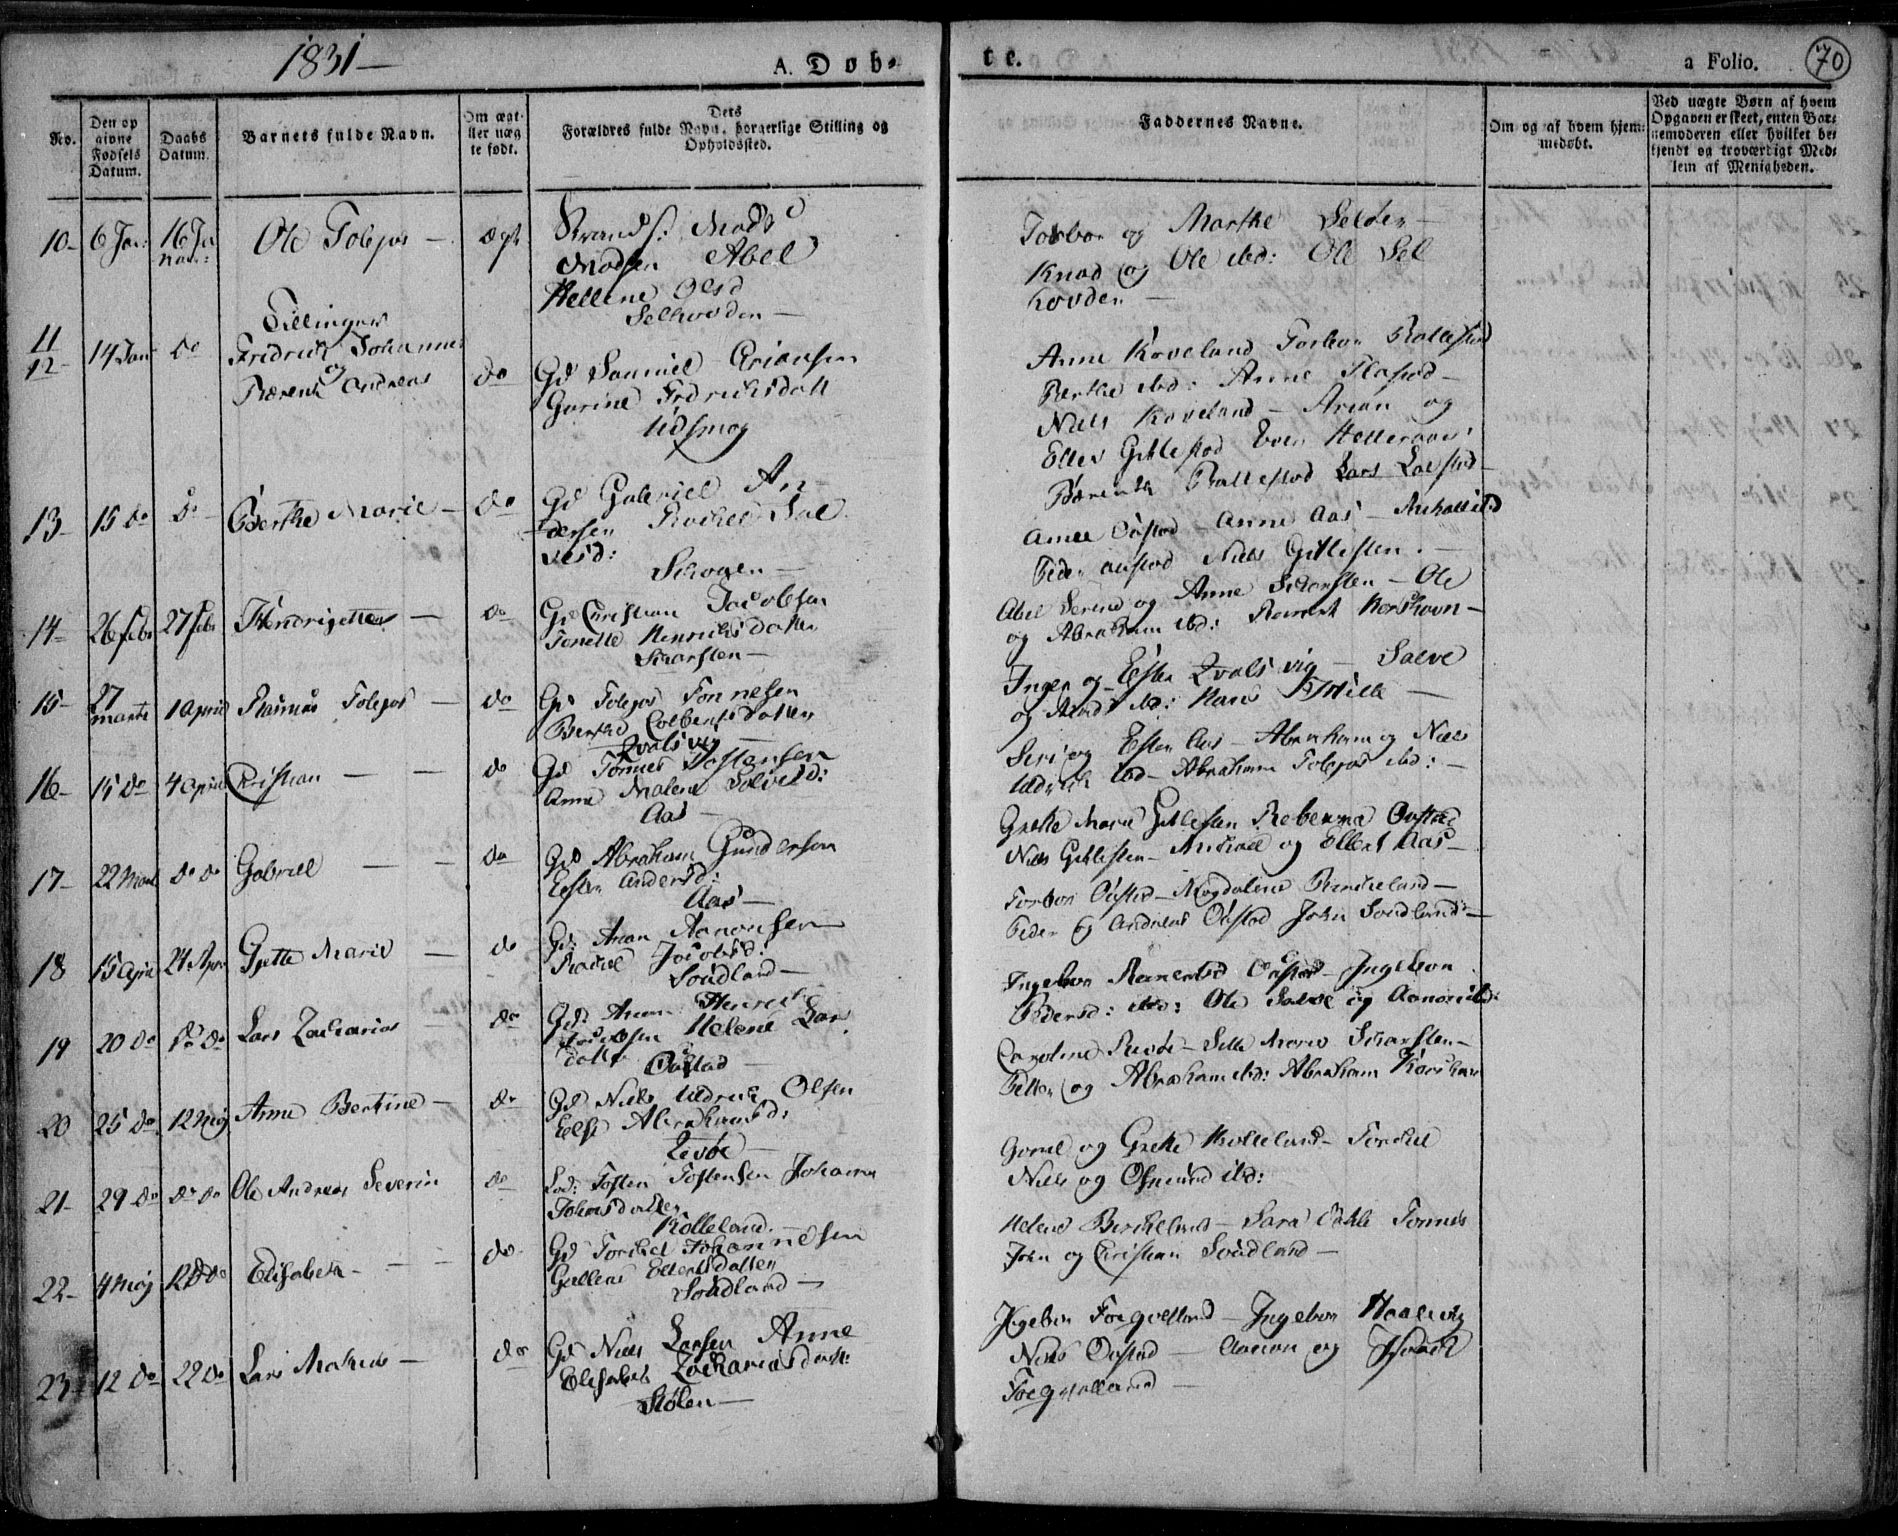 1831 —
A. Døb-
te.
a Folio.
70
No.
Den op
givne
Fødsels
Datum.
Daabs
Datum.
Barnets fulde Navn.
Om ægt-
eller uæg
te født.
Dets
Forældres fulde Navn, borgerlige Stilling og
Opholdssted.
Faddernes Navne.
Om og af hvem hjem-
medøbt.
Ved uægte Børn af hvem
Opgaven er skeet, enten Bar-
nemoderen eller hvilket be-
kjendt og troværdigt Med-
lem af Menigheden.
10- 6 Jan: 16 Ja
nuar:
Ole Tolejos — ægt
Strands: Mads
Madsen Abel
Hellene Olsd
Selkovden —
Torbor og Marthe Seløen —
Knud og Ole ibd: Ole Sel
kovden —
11
12- 14 Jan do
Tillinger
Fredrich Johannes
og
Bærent Andreas do
Gd Samuel Ariansen
Gurine Fredriksdatt
Udsmog
Anne Koveland Torbor Rallestad
Berthe ibd: Anne Flastad —
Niels Koveland — Arian og
Ellev Gitlestad Even Helleraas
Bærent Rallestad Lars
13- 15 do do Berthe Marie — do
Gd Gabriel An-
dersen Rachel Sal
vesd:
Schogen —
Amee Oustad — Anne Aas —
Peder Oustad Niels Gitlesten. —
14- 26 Febr 27 Febr Hendrigettea — do
Gd Christian Jacobsen
Tonette Henriksdatter
Skarsten —
Abel og Anne Skarsten — Ole
og Abraham ibd: Korshavn —
15- 27
marts 1 April Rasmus Tolejos — do
Gd Tolejos Tonnesen
Berthe Colbentsdatter
Qvalsvig —
Inger og Ester Qvalsvig — Salve
og ibd: Hans
16- 15 do 4 April Christian — — do
Gd Tønnes Tostensen
Anne Malene Solvesd:
Aas —
Seri og Ester Aas — Abraham og Niels
Uldrich ibd — Abraham Tolejos ibd: —
17- 22 Mart do do Gabriel — — do
Gd Abraham Gundersen
Ester Andersd:
Aas —
Grethe Marie Gitlesten Rebecca Oustad
Niels Gitlesten — Michael og Ellert Aas —
Torbor Oustad — Magdalene Birkeland —
Peder og Andreas Oustad John Soudland —
18 15 April 24 Apr Gjette Marie — do
Gd: Arian Aanonsen
Rachel Jacobsd:
Soudland —
Ingebor Reinertsd Oustad — Ingebor
Pedersd: ibd: Ole Salve og Aanon ibd:
19 20 do do do Lars Zacharias — do
Gd Henrich
Helene Lars
datt Oustad —
Caroline Revøe — Sille Marie Skarsten —
Petter og Abraham ibd: Abraham Korshavn
20 25 do 12 Maj Anne Bertine — do
Gd Niels Uldrich Olsen
Else Abrahamsd:
Revøe —
Goruel og Grethe Kolleland — Torkel
Niels og Osmund ibd:
21- 29 do do do Ole Andreas Severin do
Lod: Tosten Tostensen Johanne
Johnsdatter
Kolleland. —
Helene Birkeland — Sara Dahle Tonnes
John og Christian Soudland —
22- 4 Maj 12 do do Elisabeth — — do
Gd Torkel Johannesen
Gullene Ellertsdatter
Soudland —
Ingebor Foegvolland — Ingebor
Niels Oustad — Aanon og
Foegvolland —
23- 12 do 22 do Lars Mathias — do
Gd Niels Larsen Anne
Elisabet Zachariasdatt:
Stølen —